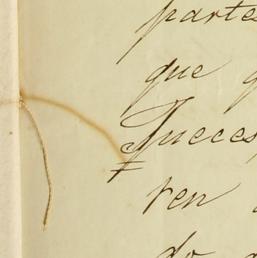 parte
que q
Jueces
ren
do